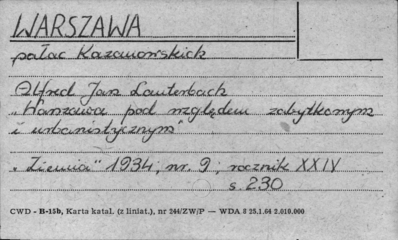 WARSZAWA
pałac Kazanowskich
Alfred Jan Lauterbach
„Warszawa pod względem zabytkowym
i urbanistycznym"
„Ziemia" 1934, nr. 9, rocznik XXIV
s. 230
CWD - B-15b, Karta katal. (z liniat.), nr 244/ZW/P — WDA z 25.1.64 2.019.000